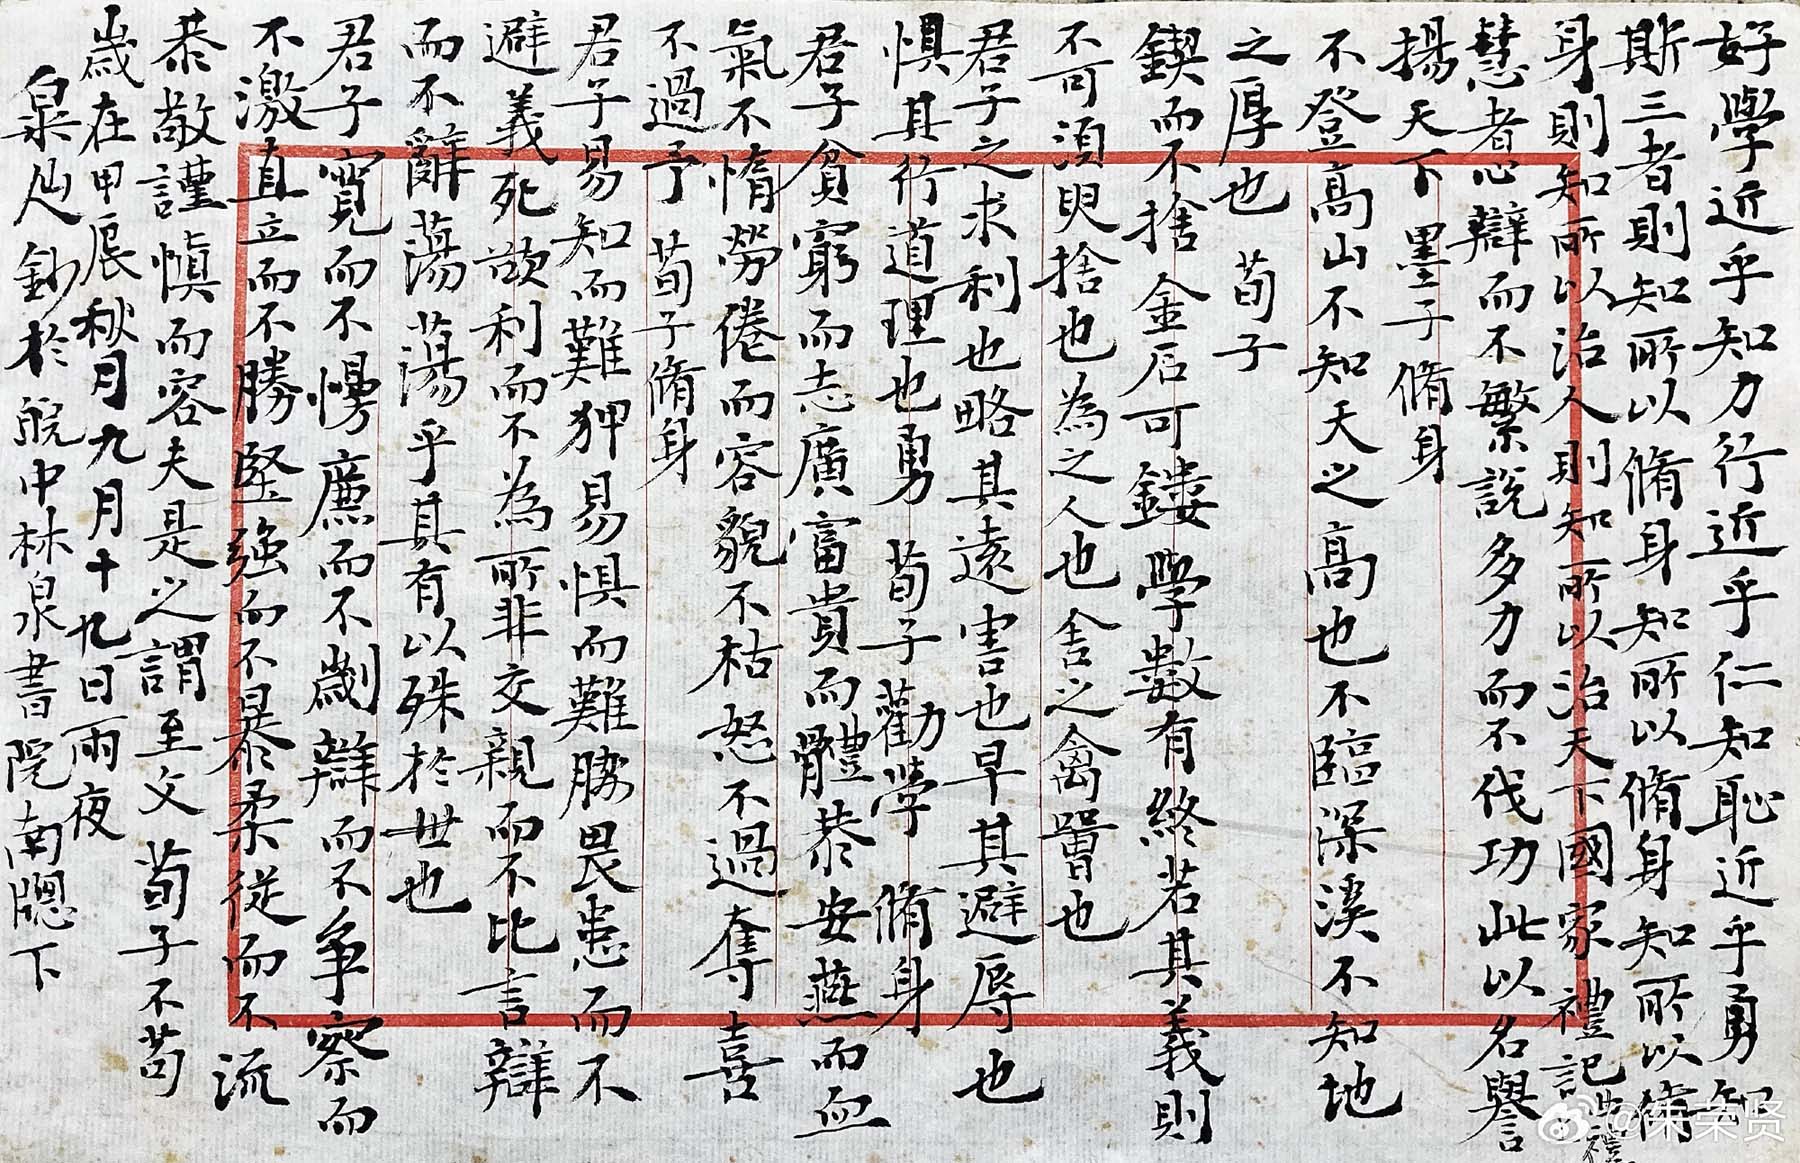 好學近乎知力行近乎仁知恥近乎勇知
斯三者則知所以脩身知所以脩身知所以脩
身則知所以治人則知所以治天下國家 禮記
慧者心辯而不繁說多力而不伐功此以名譽
揚天下 墨子脩身
不登高山不知天之高也不臨深溪不知地
之厚也 荀子
鍥而不捨金石可鏤學數有終若其義則
不可須臾捨也為之人也舍之禽獸也
君子之求利也略其遠害也早其避辱也
懼其行道理也勇 荀子勸學 脩身
君子貧窮而志廣富貴而體恭安燕而血
氣不惰勞倦而容貌不枯怒不過奪喜
不過予 荀子脩身
君子易知而難狎易懼而難脅畏患而不
避義死欲利而不為所非交親而不比言辯
而不辭蕩蕩乎其有以殊於世也
君子寬而不慢廉而不劌辯而不爭察而
不激直立而不勝堅強而不暴柔從而不流
恭敬謹慎而容夫是之謂至文 荀子不苟
歲在甲辰秋月九月十九日雨夜
泉仙鈔於皖中林泉書院南牕下
@朱荣贤